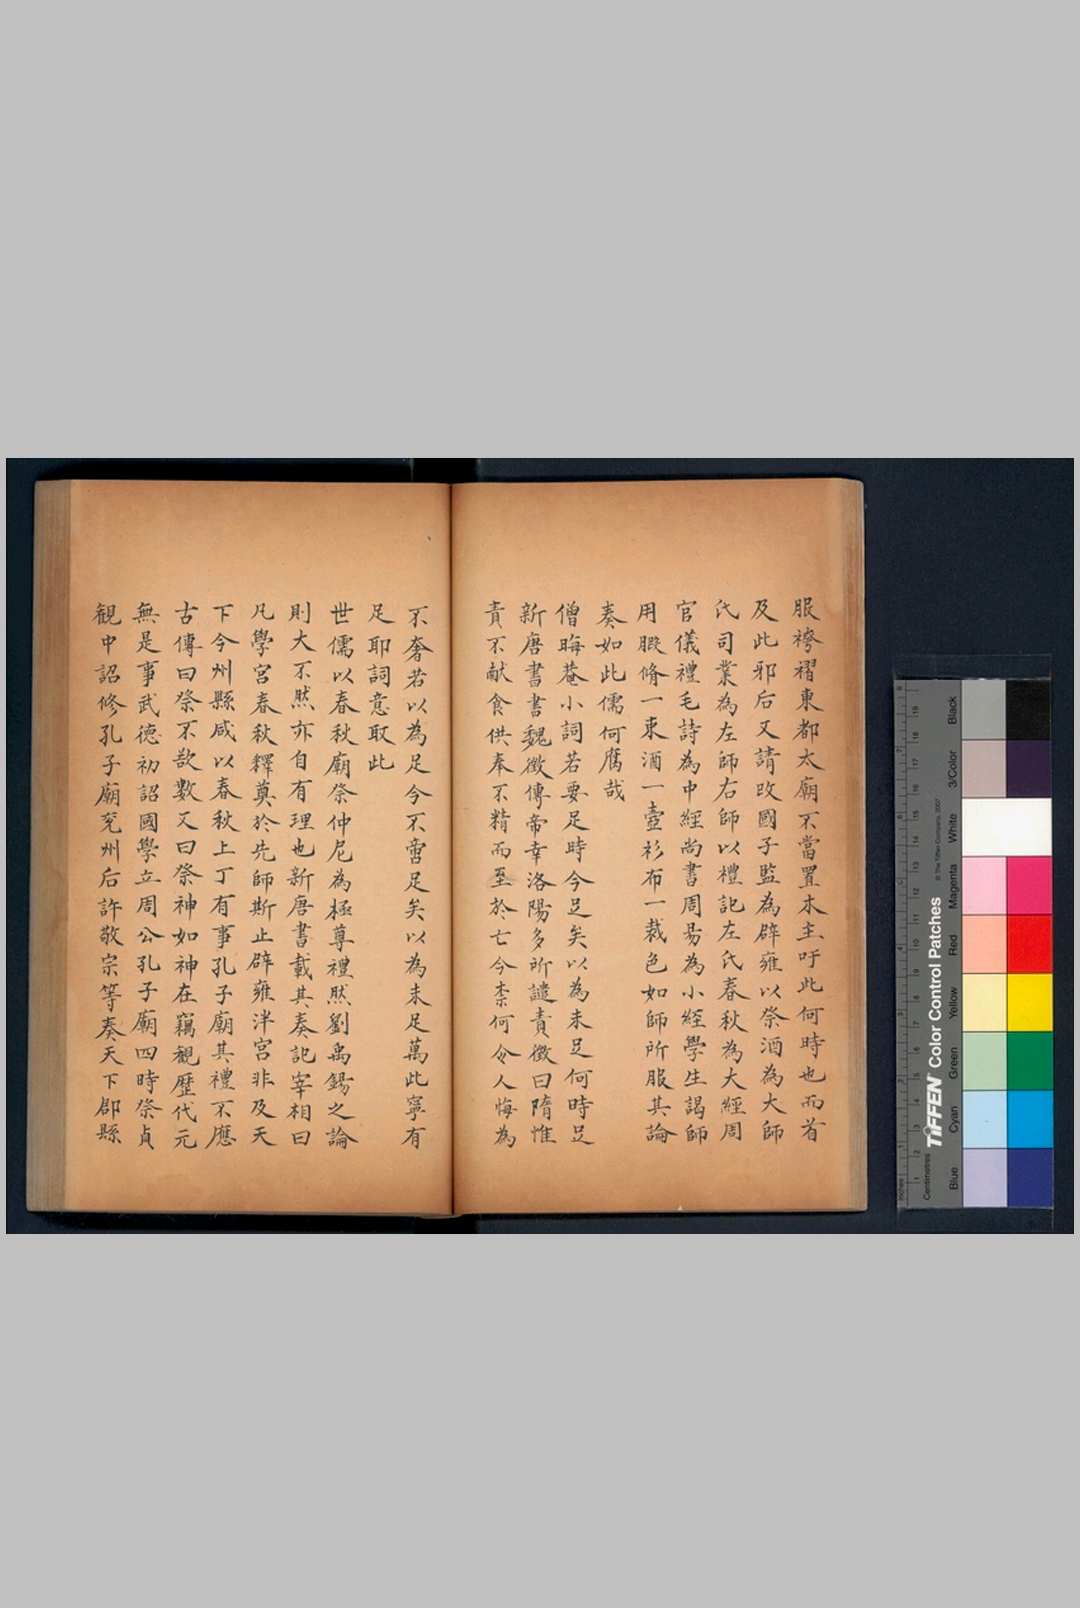 服袴褶東都太廟不當置木主吁此何時也而首
及此邪后又請改國子監為辟雍以祭酒為大師
氏司業為左師右師以禮記左氏春秋為大經周
官儀禮毛詩為中經尚書周易為小經學生謁師
用腶脩一束酒一壺衫布一裁色如師所服其論
奏如此儒何腐哉
僧晦菴小詞若要足時今足矣以為未足何時足
新唐書書魏徵傳帝幸洛陽多所譴責徵曰隋惟
責不献食供奉不精而至於亡今柰何令人悔為
不奢若以為足今不啻足矣以為未足萬此寧有
足耶詞意取此
世儒以春秋廟祭仲尼為極尊禮然劉禹錫之論
則大不然亦自有理也新唐書載其奏記宰相曰
凡學宮春秋釋奠於先師斯止辟雍泮宮非及天
下今州縣咸以春秋上丁有事孔子廟其禮不應
古傳曰祭不欲數又曰祭神如神在竊観歷代元
無是事武德初詔國學立周公孔子廟四時祭貞
観中詔修孔子廟兗州后許敬宗等奏天下郡縣
Black
3/Color
White
Magenta
Red
Yellow
Green
Cyan
Blue
TIFFEN Color Control Patches
© The Tiffen Company, 2007
Centimetres
Inches